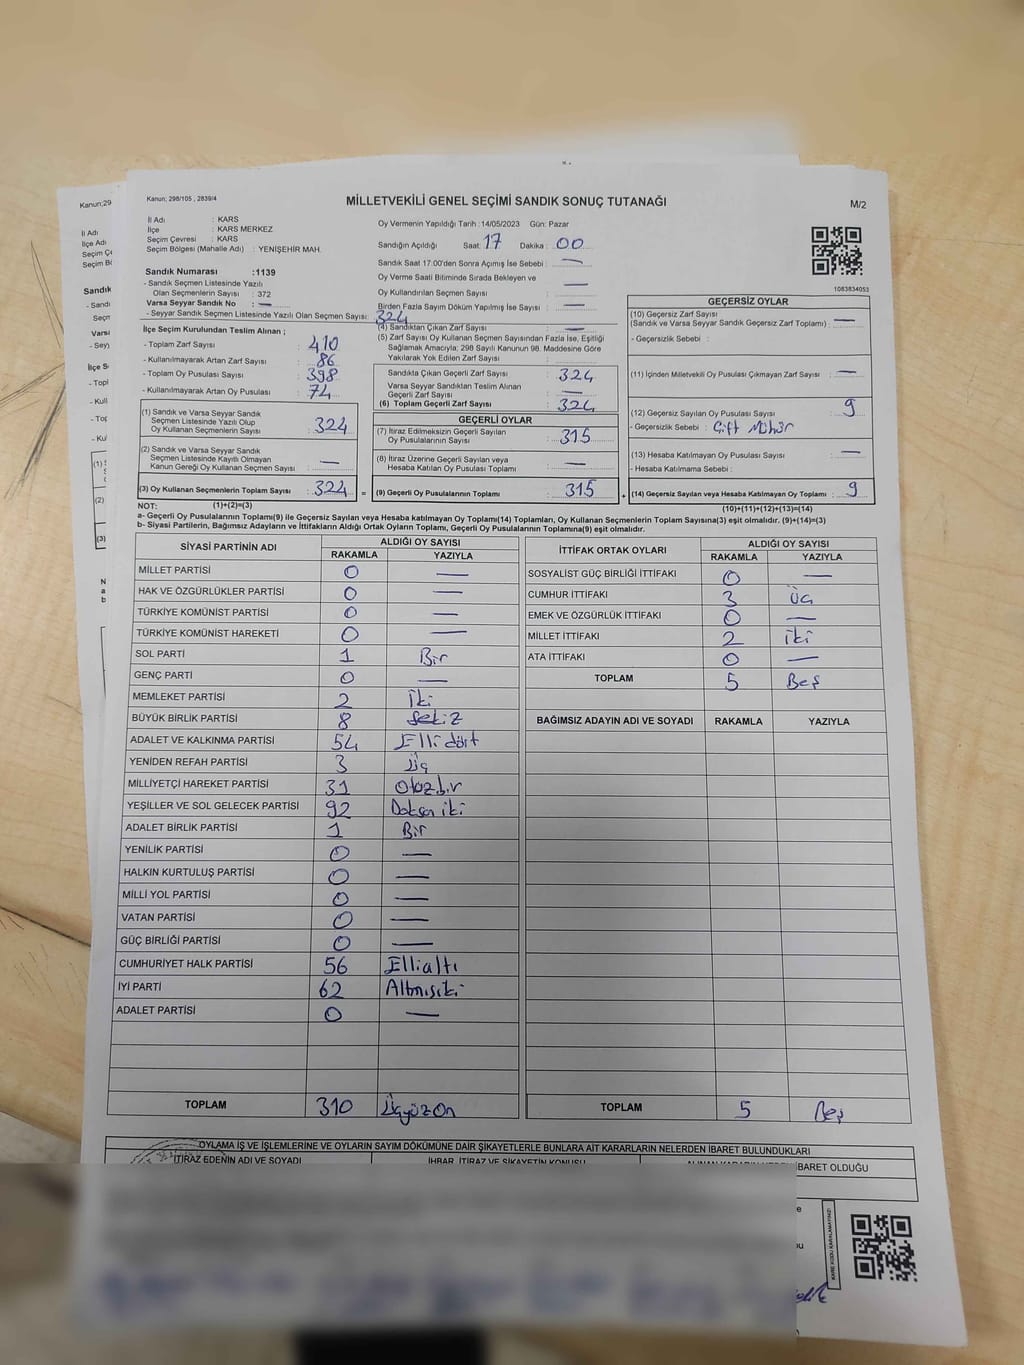 Kanun; 298/105 , 2839/4
MİLLETVEKİLİ GENEL SEÇİMİ SANDIK SONUÇ TUTANAĞI
M/2
İl Adı : KARS
İlçe : KARS MERKEZ
Seçim Çevresi : KARS
Seçim Bölgesi (Mahalle Adı) : YENİŞEHİR MAH.
Sandık Numarası :1139
- Sandık Seçmen Listesinde Yazılı
Olan Seçmenlerin Sayısı : 372
Varsa Seyyar Sandık No : —
- Seyyar Sandık Seçmen Listesinde Yazılı Olan Seçmen Sayısı: 324
İlçe Seçim Kurulundan Teslim Alınan ;
- Toplam Zarf Sayısı : 410
- Kullanılmayarak Artan Zarf Sayısı : 86
- Toplam Oy Pusulası Sayısı : 398
- Kullanılmayarak Artan Oy Pusulası : 74
(1) Sandık ve Varsa Seyyar Sandık
Seçmen Listesinde Yazılı Olup
Oy Kullanan Seçmenlerin Sayısı : 324
(2) Sandık ve Varsa Seyyar Sandık
Seçmen Listesinde Kayıtlı Olmayan
Kanun Gereği Oy Kullanan Seçmen Sayısı : —
(3) Oy Kullanan Seçmenlerin Toplam Sayısı : 324
Oy Vermenin Yapıldığı Tarih : 14/05/2023 Gün: Pazar
Sandığın Açıldığı Saat : 17 Dakika : 00
Sandık Saat 17:00'den Sonra Açılmış İse Sebebi : —
Oy Verme Saati Bitiminde Sırada Bekleyen ve
Oy Kullandırılan Seçmen Sayısı : —
Birden Fazla Sayım Döküm Yapılmış İse Sayısı : —
(4) Sandıktan Çıkan Zarf Sayısı : —
(5) Zarf Sayısı Oy Kullanan Seçmen Sayısından Fazla İse, Eşitliği
Sağlamak Amacıyla; 298 Sayılı Kanunun 98. Maddesine Göre
Yakılarak Yok Edilen Zarf Sayısı :
Sandıkta Çıkan Geçerli Zarf Sayısı : 324
Varsa Seyyar Sandıktan Teslim Alınan
Geçerli Zarf Sayısı : —
(6) Toplam Geçerli Zarf Sayısı : 324
GEÇERLİ OYLAR
(7) İtiraz Edilmeksizin Geçerli Sayılan
Oy Pusulalarının Sayısı : 315
(8) İtiraz Üzerine Geçerli Sayılan veya
Hesaba Katılan Oy Pusulası Toplamı : —
= (9) Geçerli Oy Pusulalarının Toplamı : 315
1083834053
GEÇERSİZ OYLAR
(10) Geçersiz Zarf Sayısı
(Sandık ve Varsa Seyyar Sandık Geçersiz Zarf Toplamı) : —
- Geçersizlik Sebebi :
(11) İçinden Milletvekili Oy Pusulası Çıkmayan Zarf Sayısı : —
(12) Geçersiz Sayılan Oy Pusulası Sayısı : 9
- Geçersizlik Sebebi : Çift Mühür
(13) Hesaba Katılmayan Oy Pusulası Sayısı : —
- Hesaba Katılmama Sebebi :
+ (14) Geçersiz Sayılan veya Hesaba Katılmayan Oy Toplamı : 9
NOT: (1)+(2)=(3)
(10)+(11)+(12)+(13)=(14)
a- Geçerli Oy Pusulalarının Toplamı(9) ile Geçersiz Sayılan veya Hesaba katılmayan Oy Toplamı(14) Toplamları, Oy Kullanan Seçmenlerin Toplam Sayısına(3) eşit olmalıdır. (9)+(14)=(3)
b- Siyasi Partilerin, Bağımsız Adayların ve İttifakların Aldığı Ortak Oyların Toplamı, Geçerli Oy Pusulalarının Toplamına(9) eşit olmalıdır.
SİYASİ PARTİNİN ADI ALDIĞI OY SAYISI
RAKAMLA YAZIYLA
MİLLET PARTİSİ 0 —
HAK VE ÖZGÜRLÜKLER PARTİSİ 0 —
TÜRKİYE KOMÜNİST PARTİSİ 0 —
TÜRKİYE KOMÜNİST HAREKETİ 0 —
SOL PARTİ 1 Bir
GENÇ PARTİ 0 —
MEMLEKET PARTİSİ 2 İki
BÜYÜK BİRLİK PARTİSİ 8 Sekiz
ADALET VE KALKINMA PARTİSİ 54 Ellidört
YENİDEN REFAH PARTİSİ 3 Üç
MİLLİYETÇİ HAREKET PARTİSİ 31 Otuzbir
YEŞİLLER VE SOL GELECEK PARTİSİ 92 Doksan iki
ADALET BİRLİK PARTİSİ 1 Bir
YENİLİK PARTİSİ 0 —
HALKIN KURTULUŞ PARTİSİ 0 —
MİLLİ YOL PARTİSİ 0 —
VATAN PARTİSİ 0 —
GÜÇ BİRLİĞİ PARTİSİ 0 —
CUMHURİYET HALK PARTİSİ 56 Ellialtı
İYİ PARTİ 62 Altmışiki
ADALET PARTİSİ 0 —
TOPLAM 310 Üçyüzon
İTTİFAK ORTAK OYLARI ALDIĞI OY SAYISI
RAKAMLA YAZIYLA
SOSYALİST GÜÇ BİRLİĞİ İTTİFAKI 0 —
CUMHUR İTTİFAKI 3 Üç
EMEK VE ÖZGÜRLÜK İTTİFAKI 0 —
MİLLET İTTİFAKI 2 İki
ATA İTTİFAKI 0 —
TOPLAM 5 Beş
BAĞIMSIZ ADAYIN ADI VE SOYADI RAKAMLA YAZIYLA
TOPLAM 5 Beş
OYLAMA İŞ VE İŞLEMLERİNE VE OYLARIN SAYIM DÖKÜMÜNE DAİR ŞİKAYETLERLE BUNLARA AİT KARARLARIN NELERDEN İBARET BULUNDUKLARI
İTİRAZ EDENİN ADI VE SOYADI İHBAR, İTİRAZ VE ŞİKAYETİN KONUSU İBARET OLDUĞU
KARE KODU KARALAMAYINIZ!